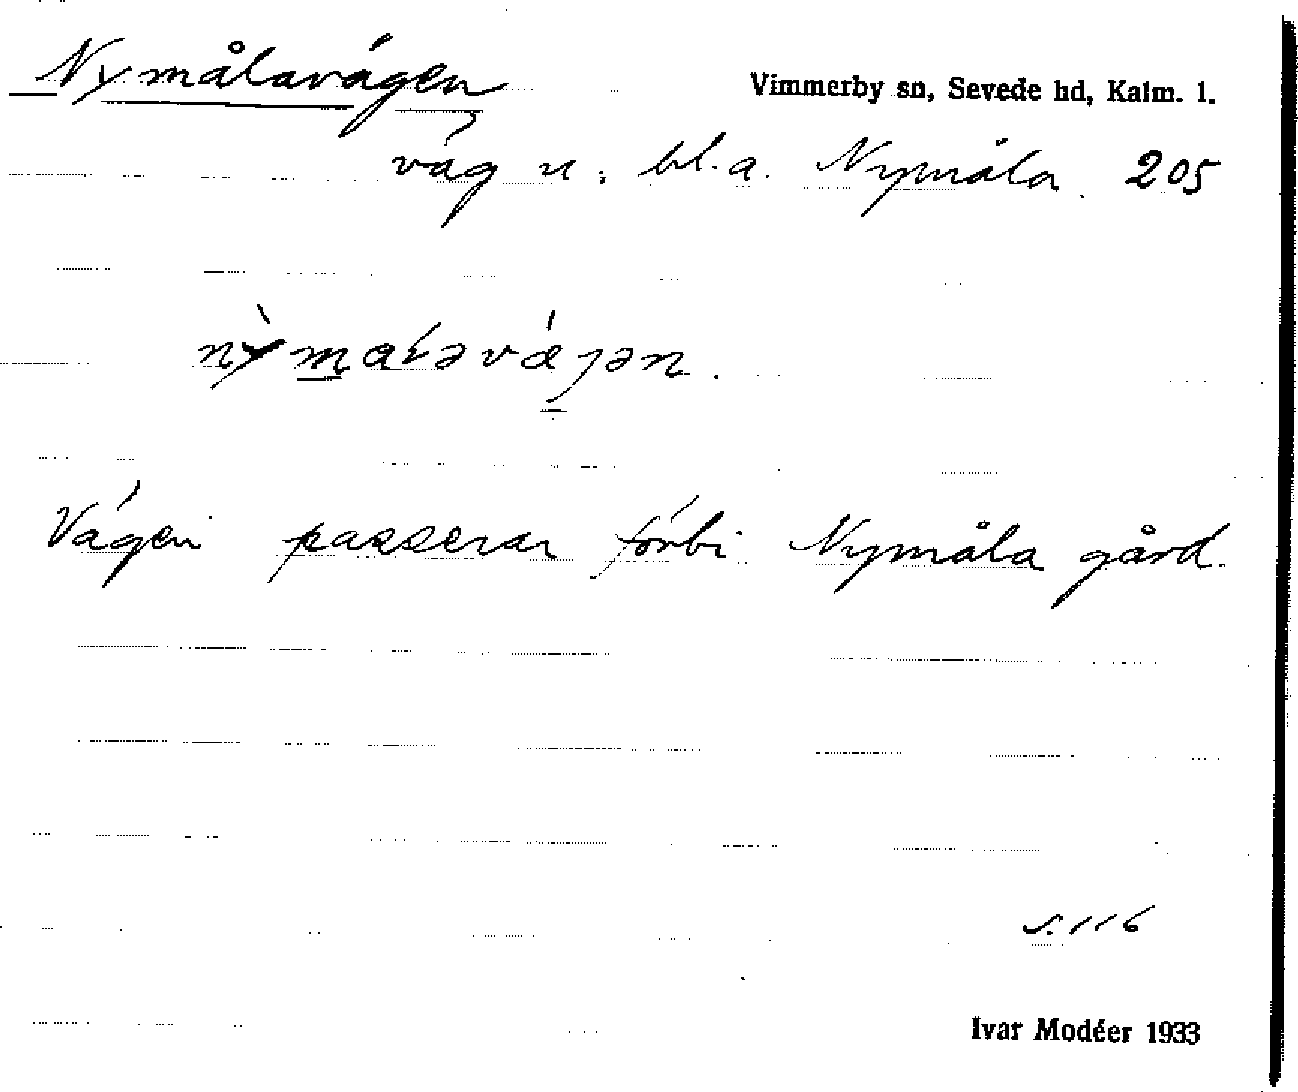 Nymålavägen
Vimmerby sn, Sevede hd, Kalm. l.
väg n. bl.a. Nymåla. 205
Vägen passerar förbi Nymåla gård.
s. 116
Ivar Modéer 1933